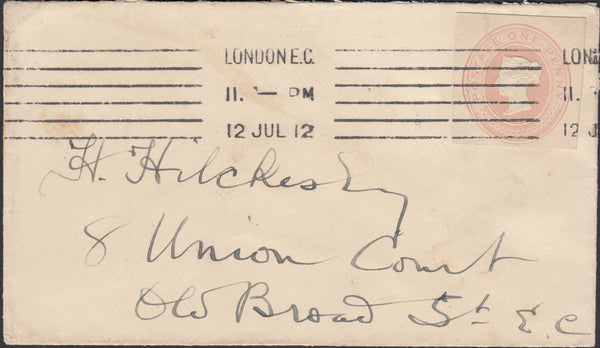 LONDON E.C.
11. — PM
12 JUL 12
POSTAGE ONE PENNY
LON
11.
12 J
H. Hilckes Esq
8 Union Court
Old Broad St E.C